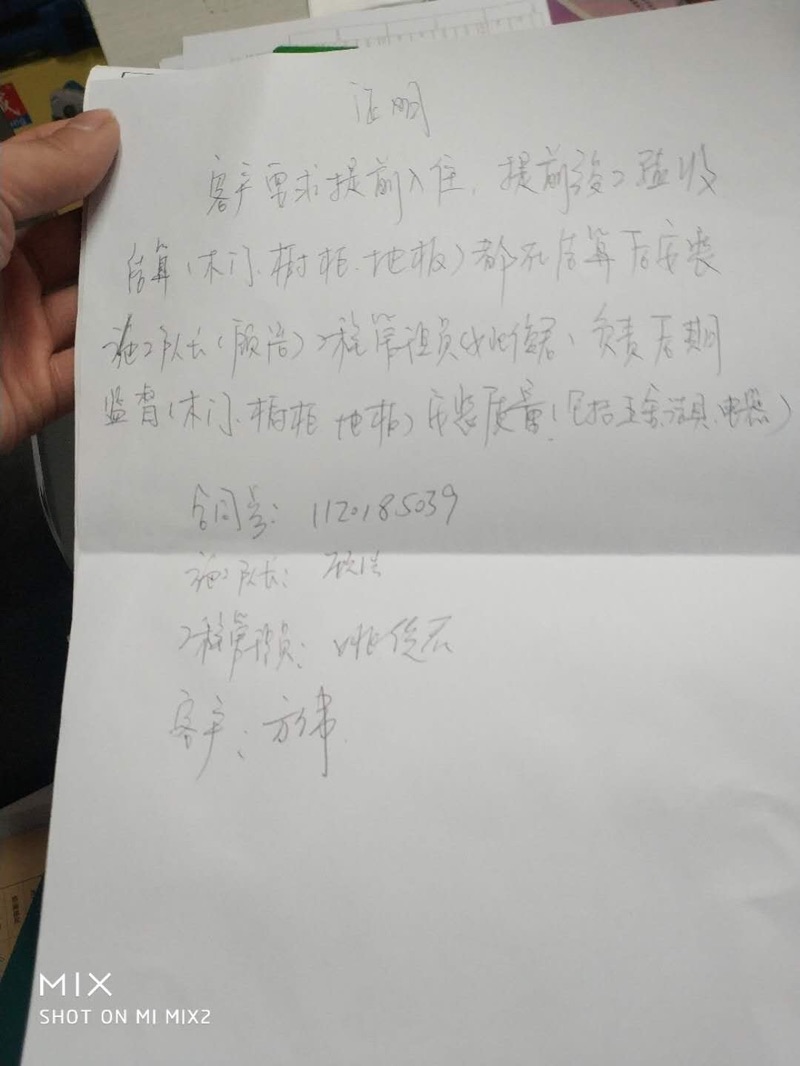 证明
客户要求提前入住,提前竣工验收
结算(木门.橱柜.地板)都在结算后安装
施工队长(顾浩)工程管理员(姚俊君)负责后期
监督(木门.橱柜 地板)安装质量(包括五金.洁具.电器)
合同号:1120185039
施工队长:顾浩
工程管理员:姚俊君
客户:方
MIX
SHOT ON MI MIX2